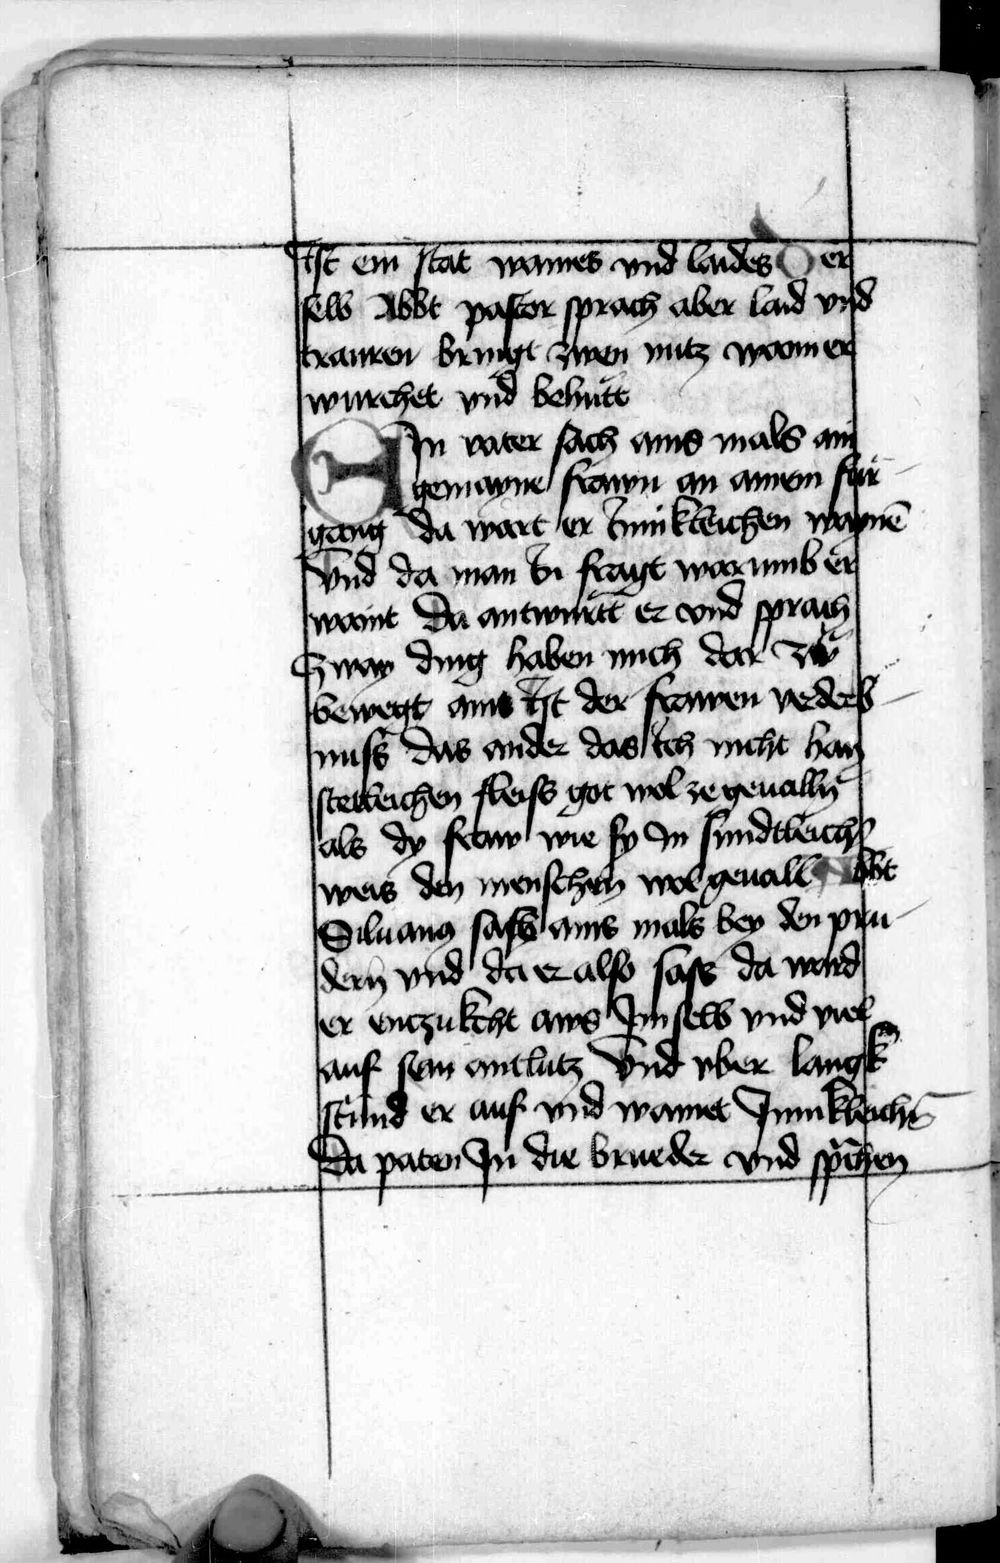 Ist ein stat waines vnd laides Der
selb Abbt pastor sprach aber laid vnd
trauren bringt zwen nutz wann er
wurchet vnd behütt
Ein vater sach ains mals ain
gemayne frawn an ainem für
gang da wart er Innikleichen waynē
Vnd da man In fragt warumb er
waint Da antwurtt er vnd sprach
Zway ding haben mich dar zů
bewegt ains Ist der frawen verderb
nuss das ander das Ich nicht han
stetleichen fleiss got wol ze geualln̄
als dy fraw wie sy In sundtleicher
weis den menschen wol geuall Abbt
Siluans sass ains mals bey den prü
dern̄ vnd da er also sass da ward
er enczukcht aws Im selb vnd viel
auf sein antlutz Vnd vber langk
stund er auf vnd wainet Innikleichn̄
Da paten In die brueder vnd sprachen